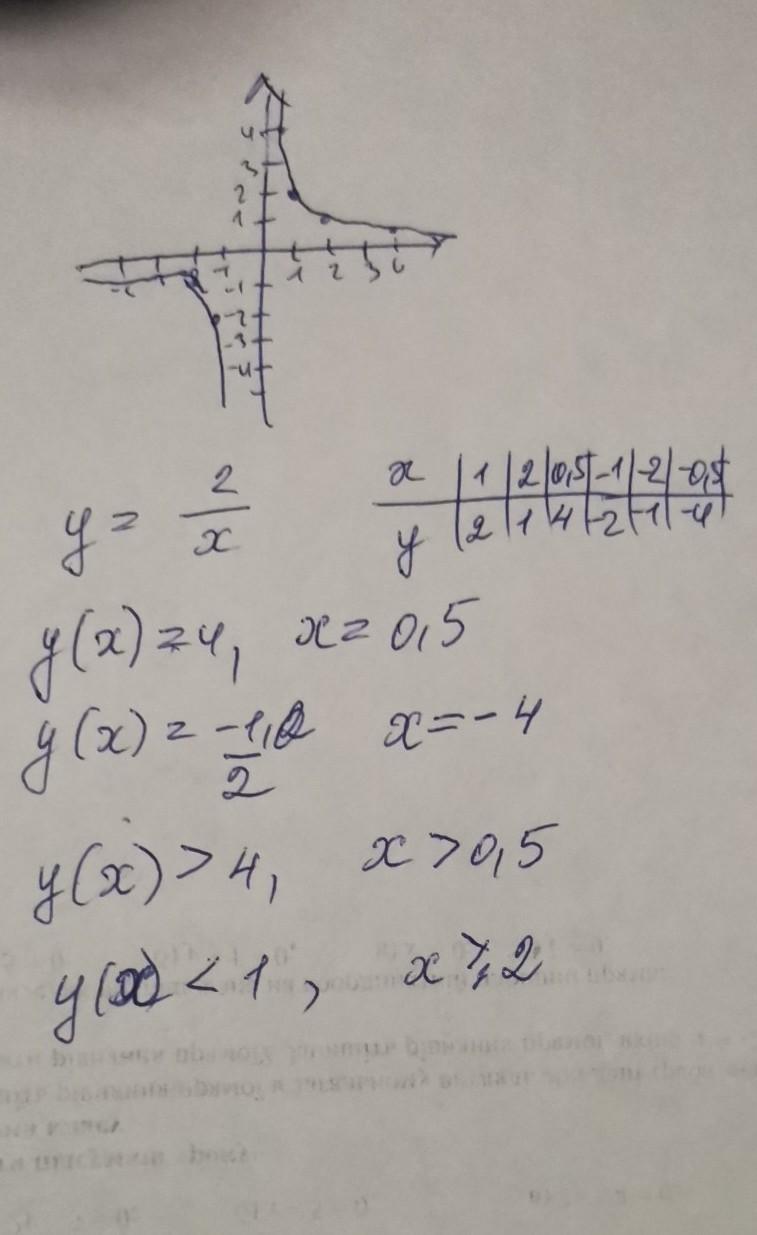 4
3
2
1
-1 1 2 3
-1
-2
-3
-4
y = 2/x
x | 1 | 2 | 0,5 | -1 | -2 | -0,5
y | 2 | 1 | 4 | -2 | -1 | -4
y(x) = 4, x = 0,5
y(x) = -1, /2 x = -4
y(x) > 4, x > 0,5
y(x) < 1, x 2